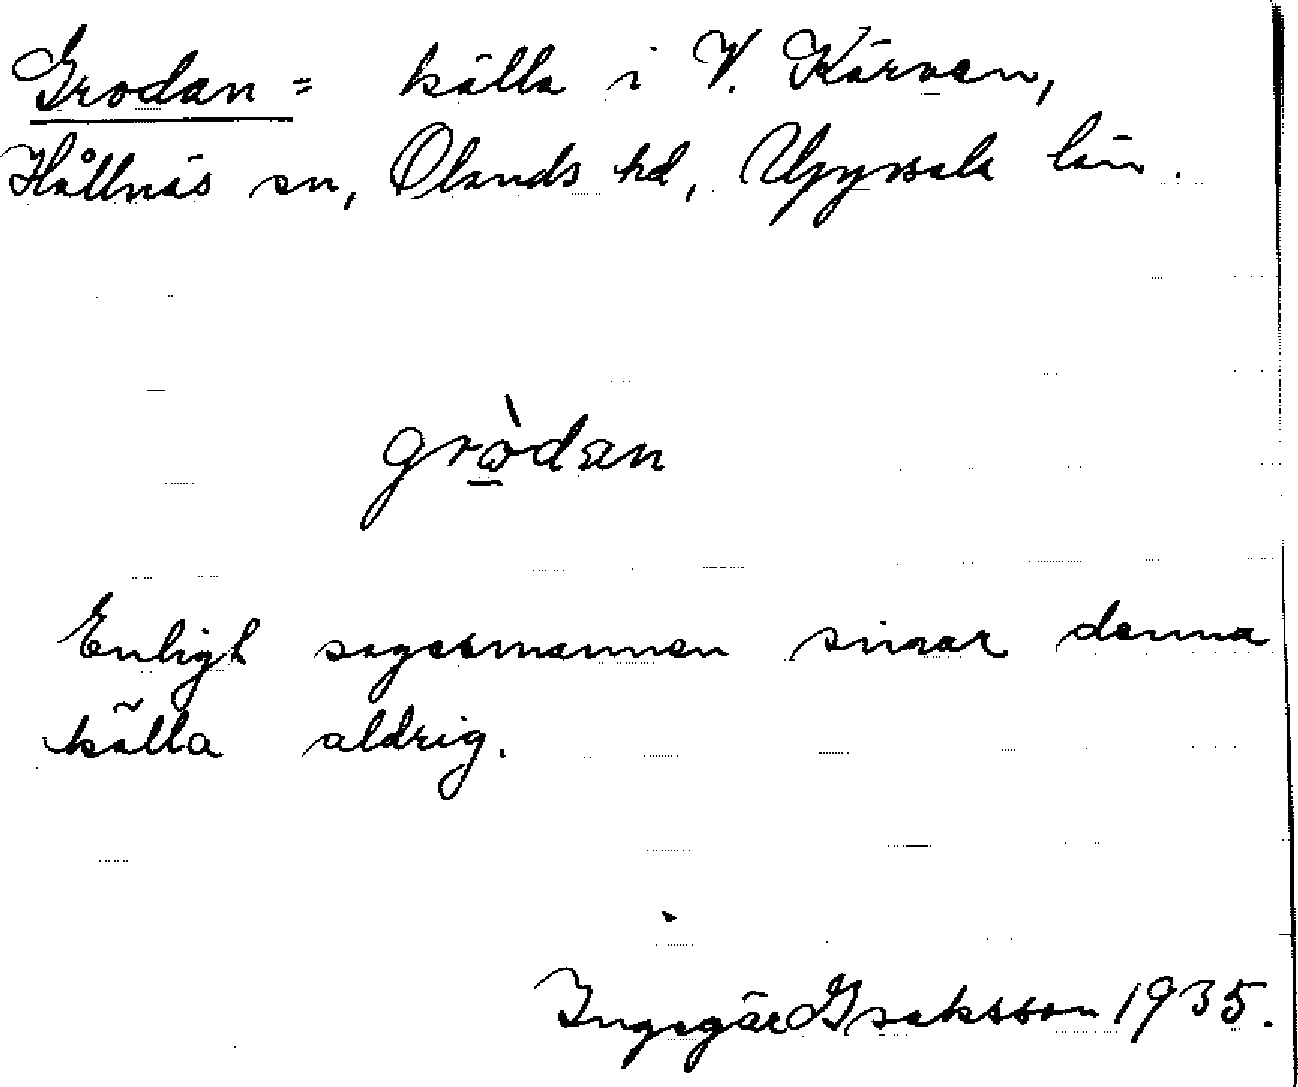 Grodan = källa i V. Kärven,
Hållnäs sn, Olands hd, Uppsala län.
gròdan
Enligt sagesmannen sinar denna
källa aldrig.
Ingegär Isaksson 1935.